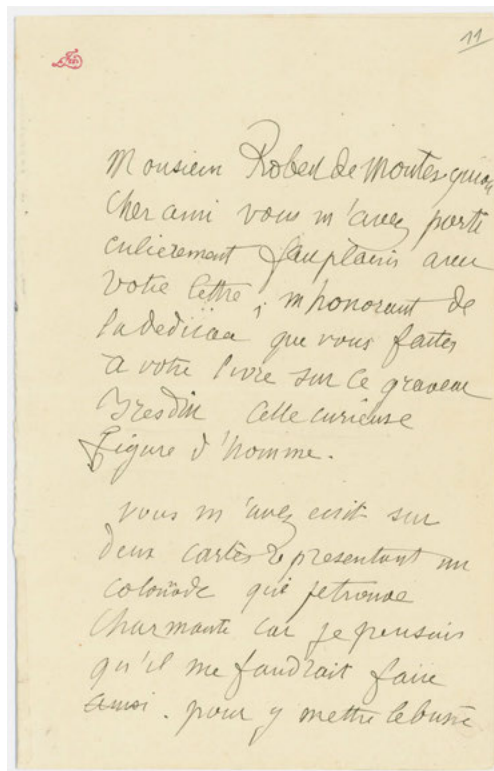 11
Monsieur Robert de Montesquiou
Cher ami vous m'avez parti
culierement fau plaisir avec
votre lettre, m'honorant de
la dedicaa que vous faites
a votre livre sur le graveur
Bresdin Cette curieuse
figure d'homme.
vous m'avez ecrit sur
deux cartes representant un
colonade que je trouve
Charmante car je pensais
qu'il me faudrait faire
ainsi. pour y mettre le buste